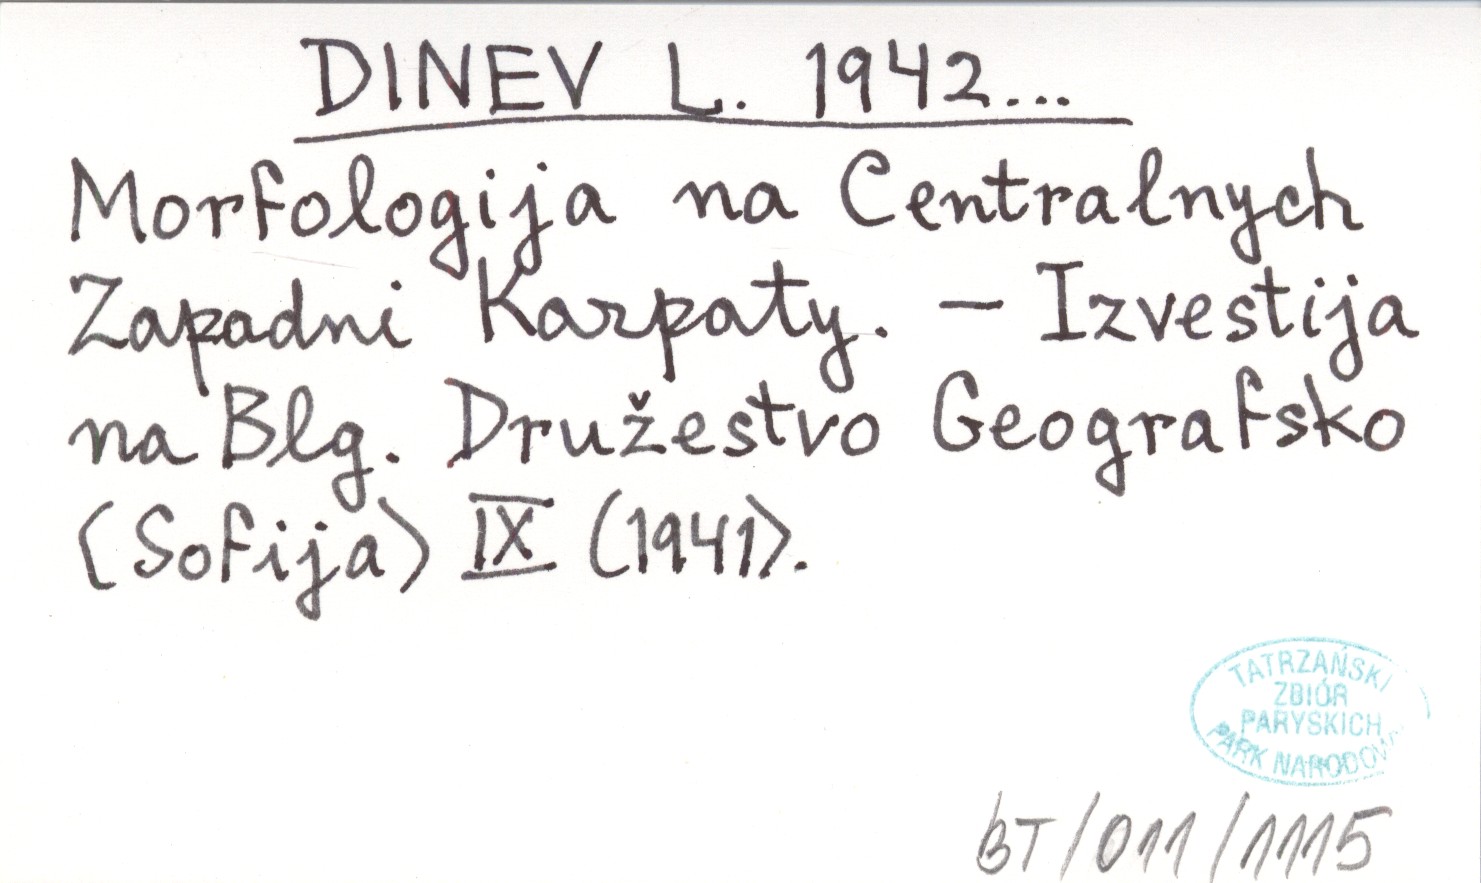 DINEV L. 1942...
Morfologija na Centralnych
Zapadni Karpaty. – Izvestija
na Blg. Družestvo Geografsko
(Sofija) IX (1941).
TATRZAŃSKI
ZBIÓR
PARYSKICH
PARK NARODOW
BT/011/1115